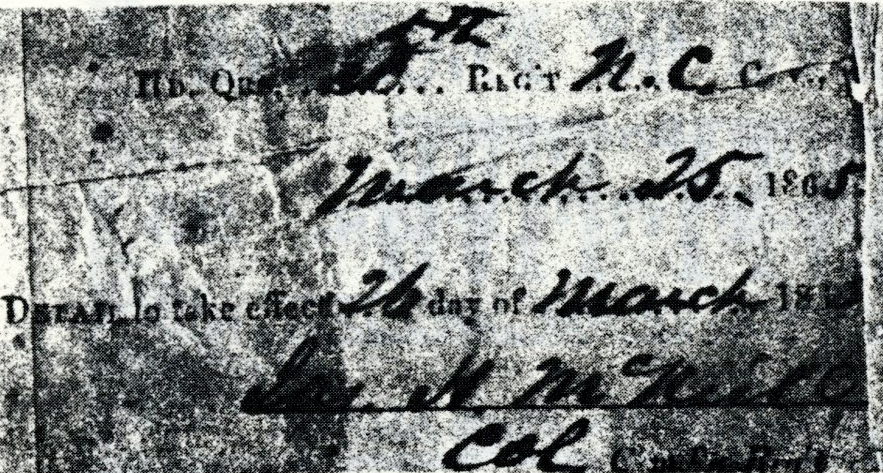 HD. QRS. 5th REG'T N. C. C
March 25 1865.
DETAIL to take effect 26 day of March 18
Jas. H McNeill
Col